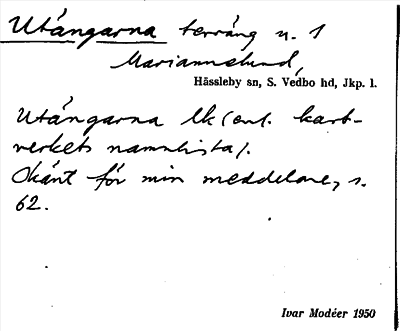 Utängarna terräng n. 1
Mariannelund,
Hässleby sn, S. Vedbo hd, Jkp. l.
Utängarna lk (enl. kart-
verkets namnlista).
Okänt för min meddelare, s.
62.
Ivar Modéer 1950